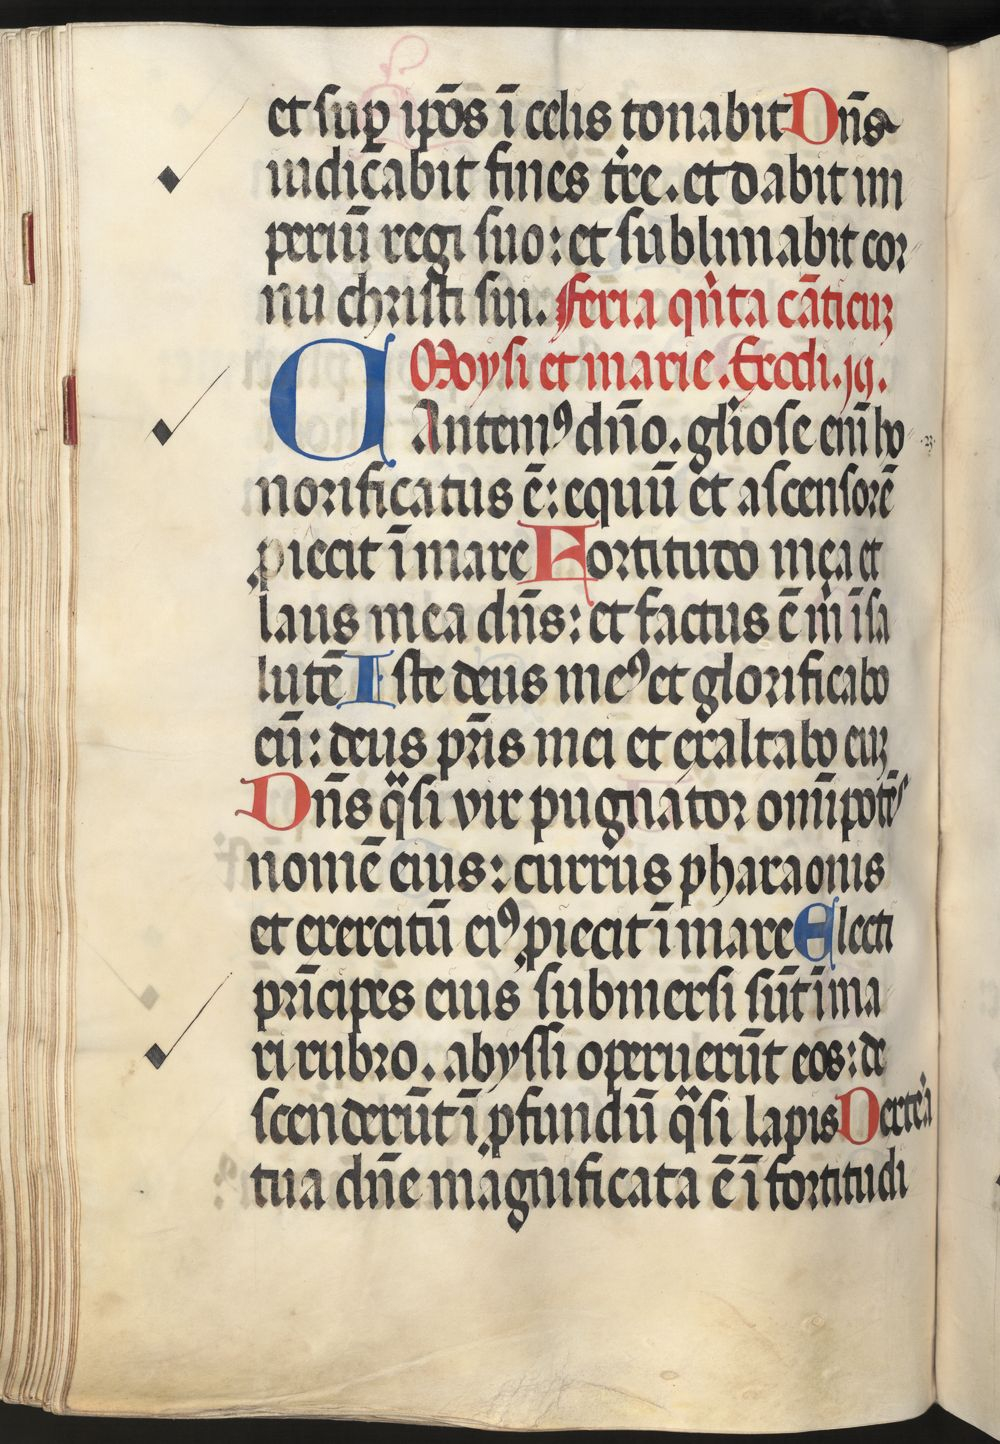 et sup ip̄os ī celis tonabit Dn̄s
iudicabit fines tr̄e. et dabit im
periū regi suo: et sublimabit cor
nu christi sui. Feria qn̄ta cāticuꝫ
Moysi et marie. Exodi. xv.
CAntemꝰ dn̄o. gl̄iose eni ho
norificatus ē: equū et ascensorē
ꝓiecit ī mare Fortitudo mea et
laus mea dn̄s: et factus ē m̄ ī sa
lutē Iste deus meꝰ et glorificabo
eū: deus pr̄is mei et exaltabo euꝫ
Dn̄s q̄si vir pugnator omīpotēs
nomē eius: currus pharaonis
et exercitū eiꝰ ꝓiecit ī mare Electi
prīcipes eius submersi sūt ī ma
ri rubro. abyssi operuerūt eos: de
scenderūt ī ꝓfundū q̄si lapis Dexte᷑a
tua dn̄e magnificata ē ī fortitudi